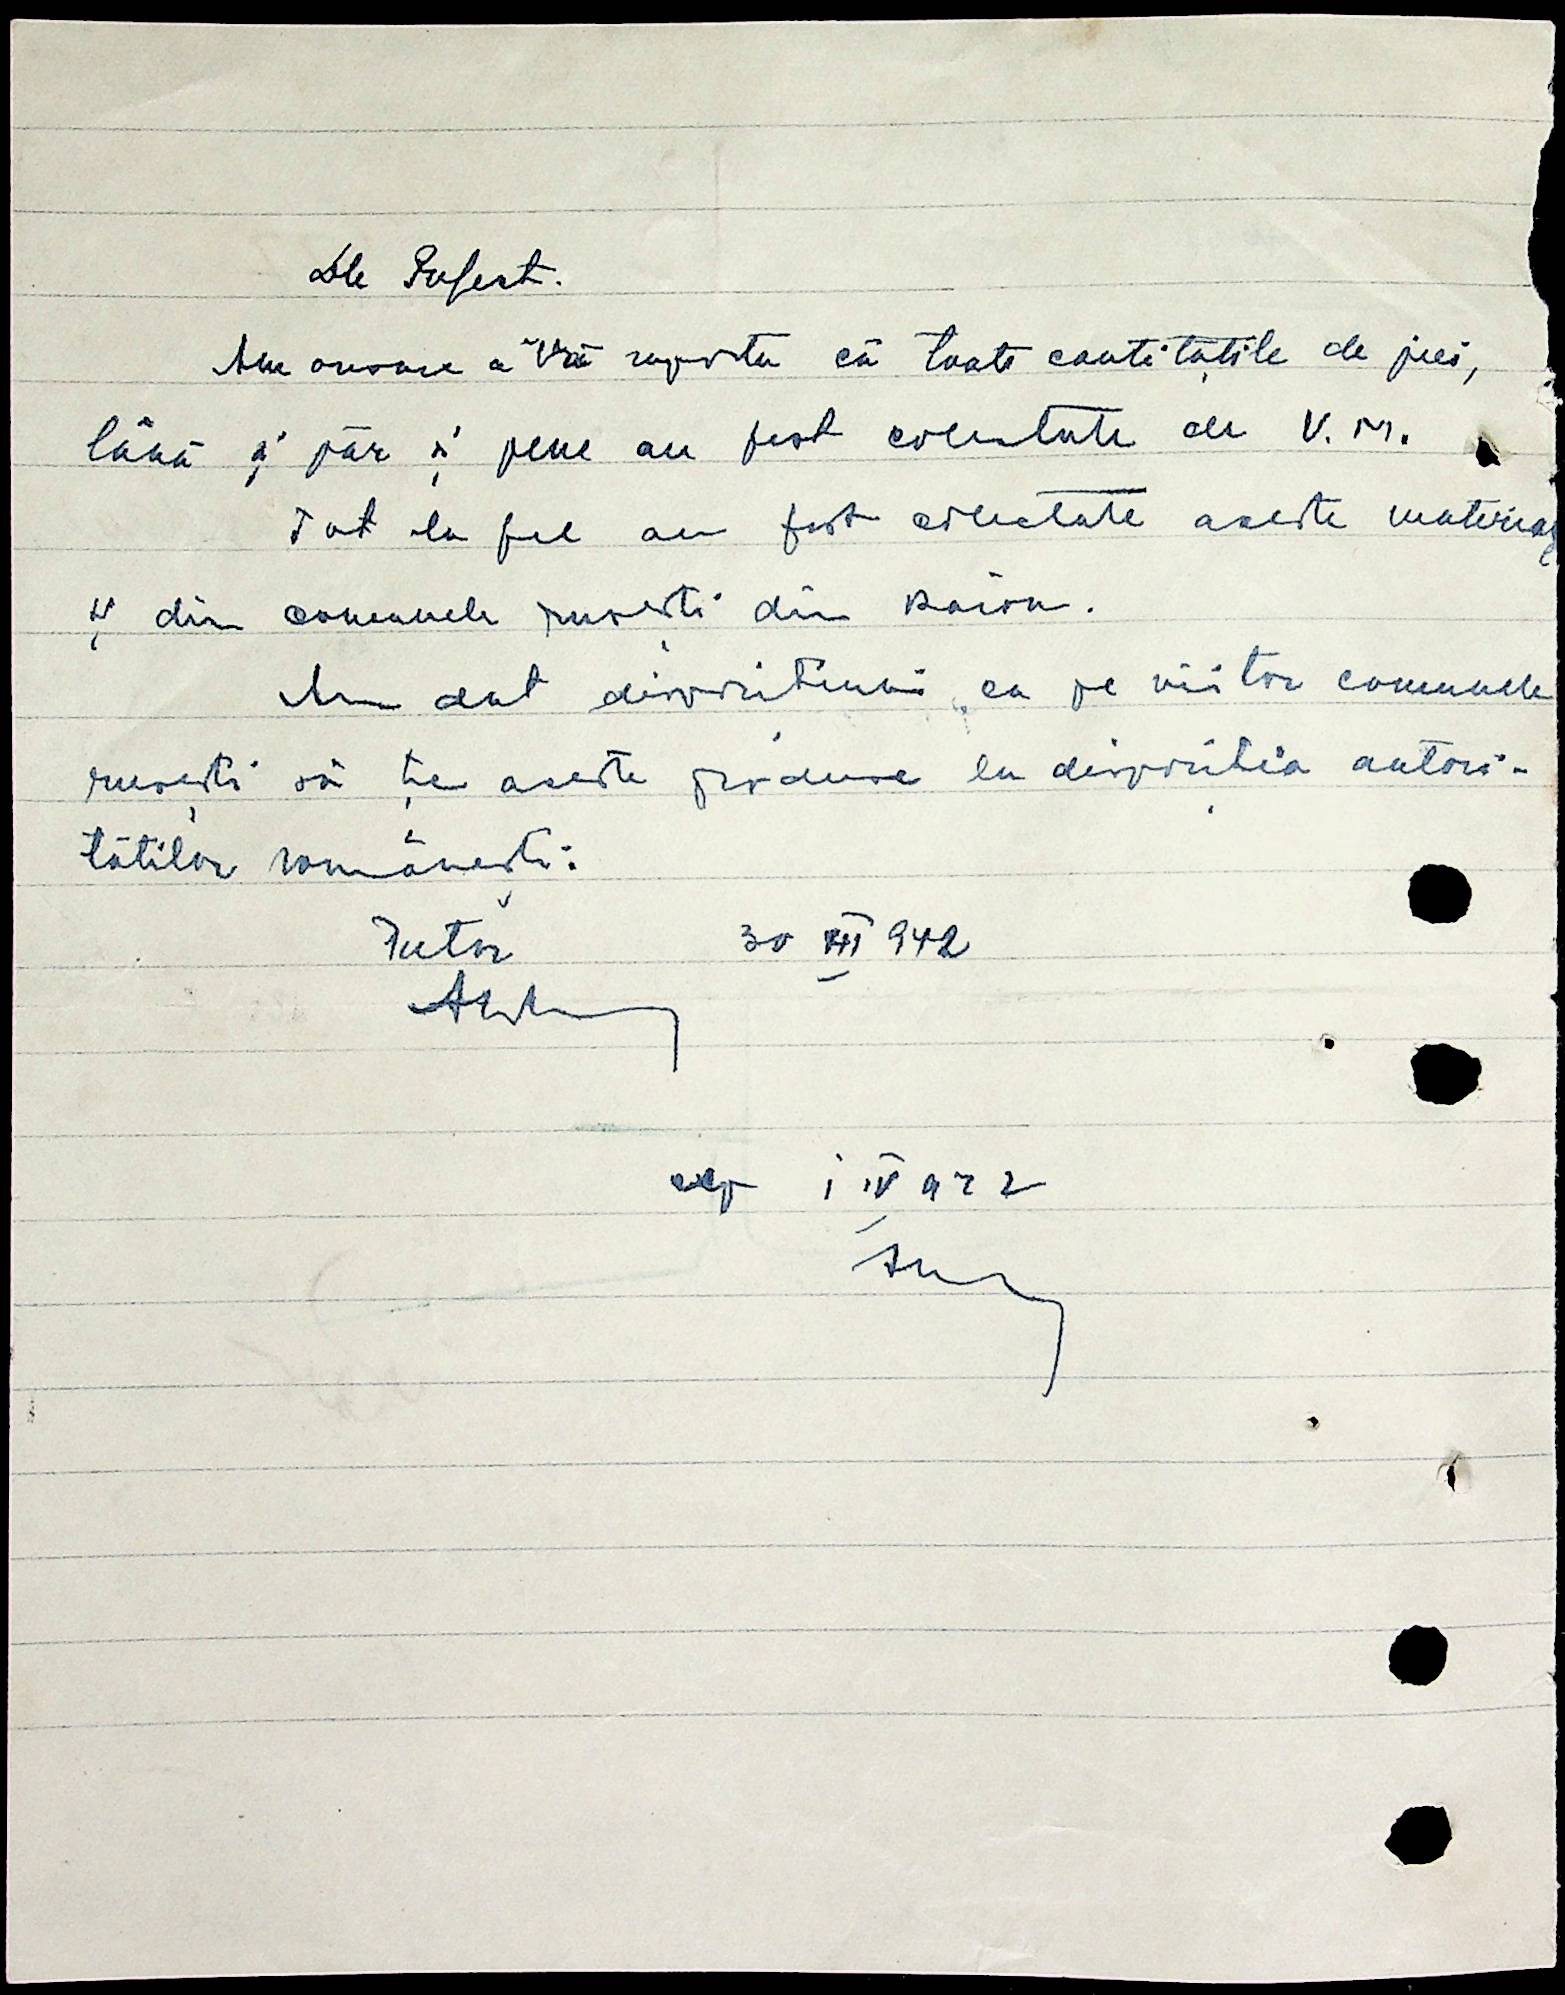 Dle Prefect.
Am onoare a Vă raporta că toate cantitățile de piei,
lână și păr și pene au fost colectate de V. M.
Tot la fel au fost colectate aceste materiale
și din comunele rusești din Raion.
Am dat dispozițiuni ca pe viitor comunele
rusești să ție aceste produse la dispoziția autori-
tăților românești.
Pretor 30 III 942
exp 1 IV 942